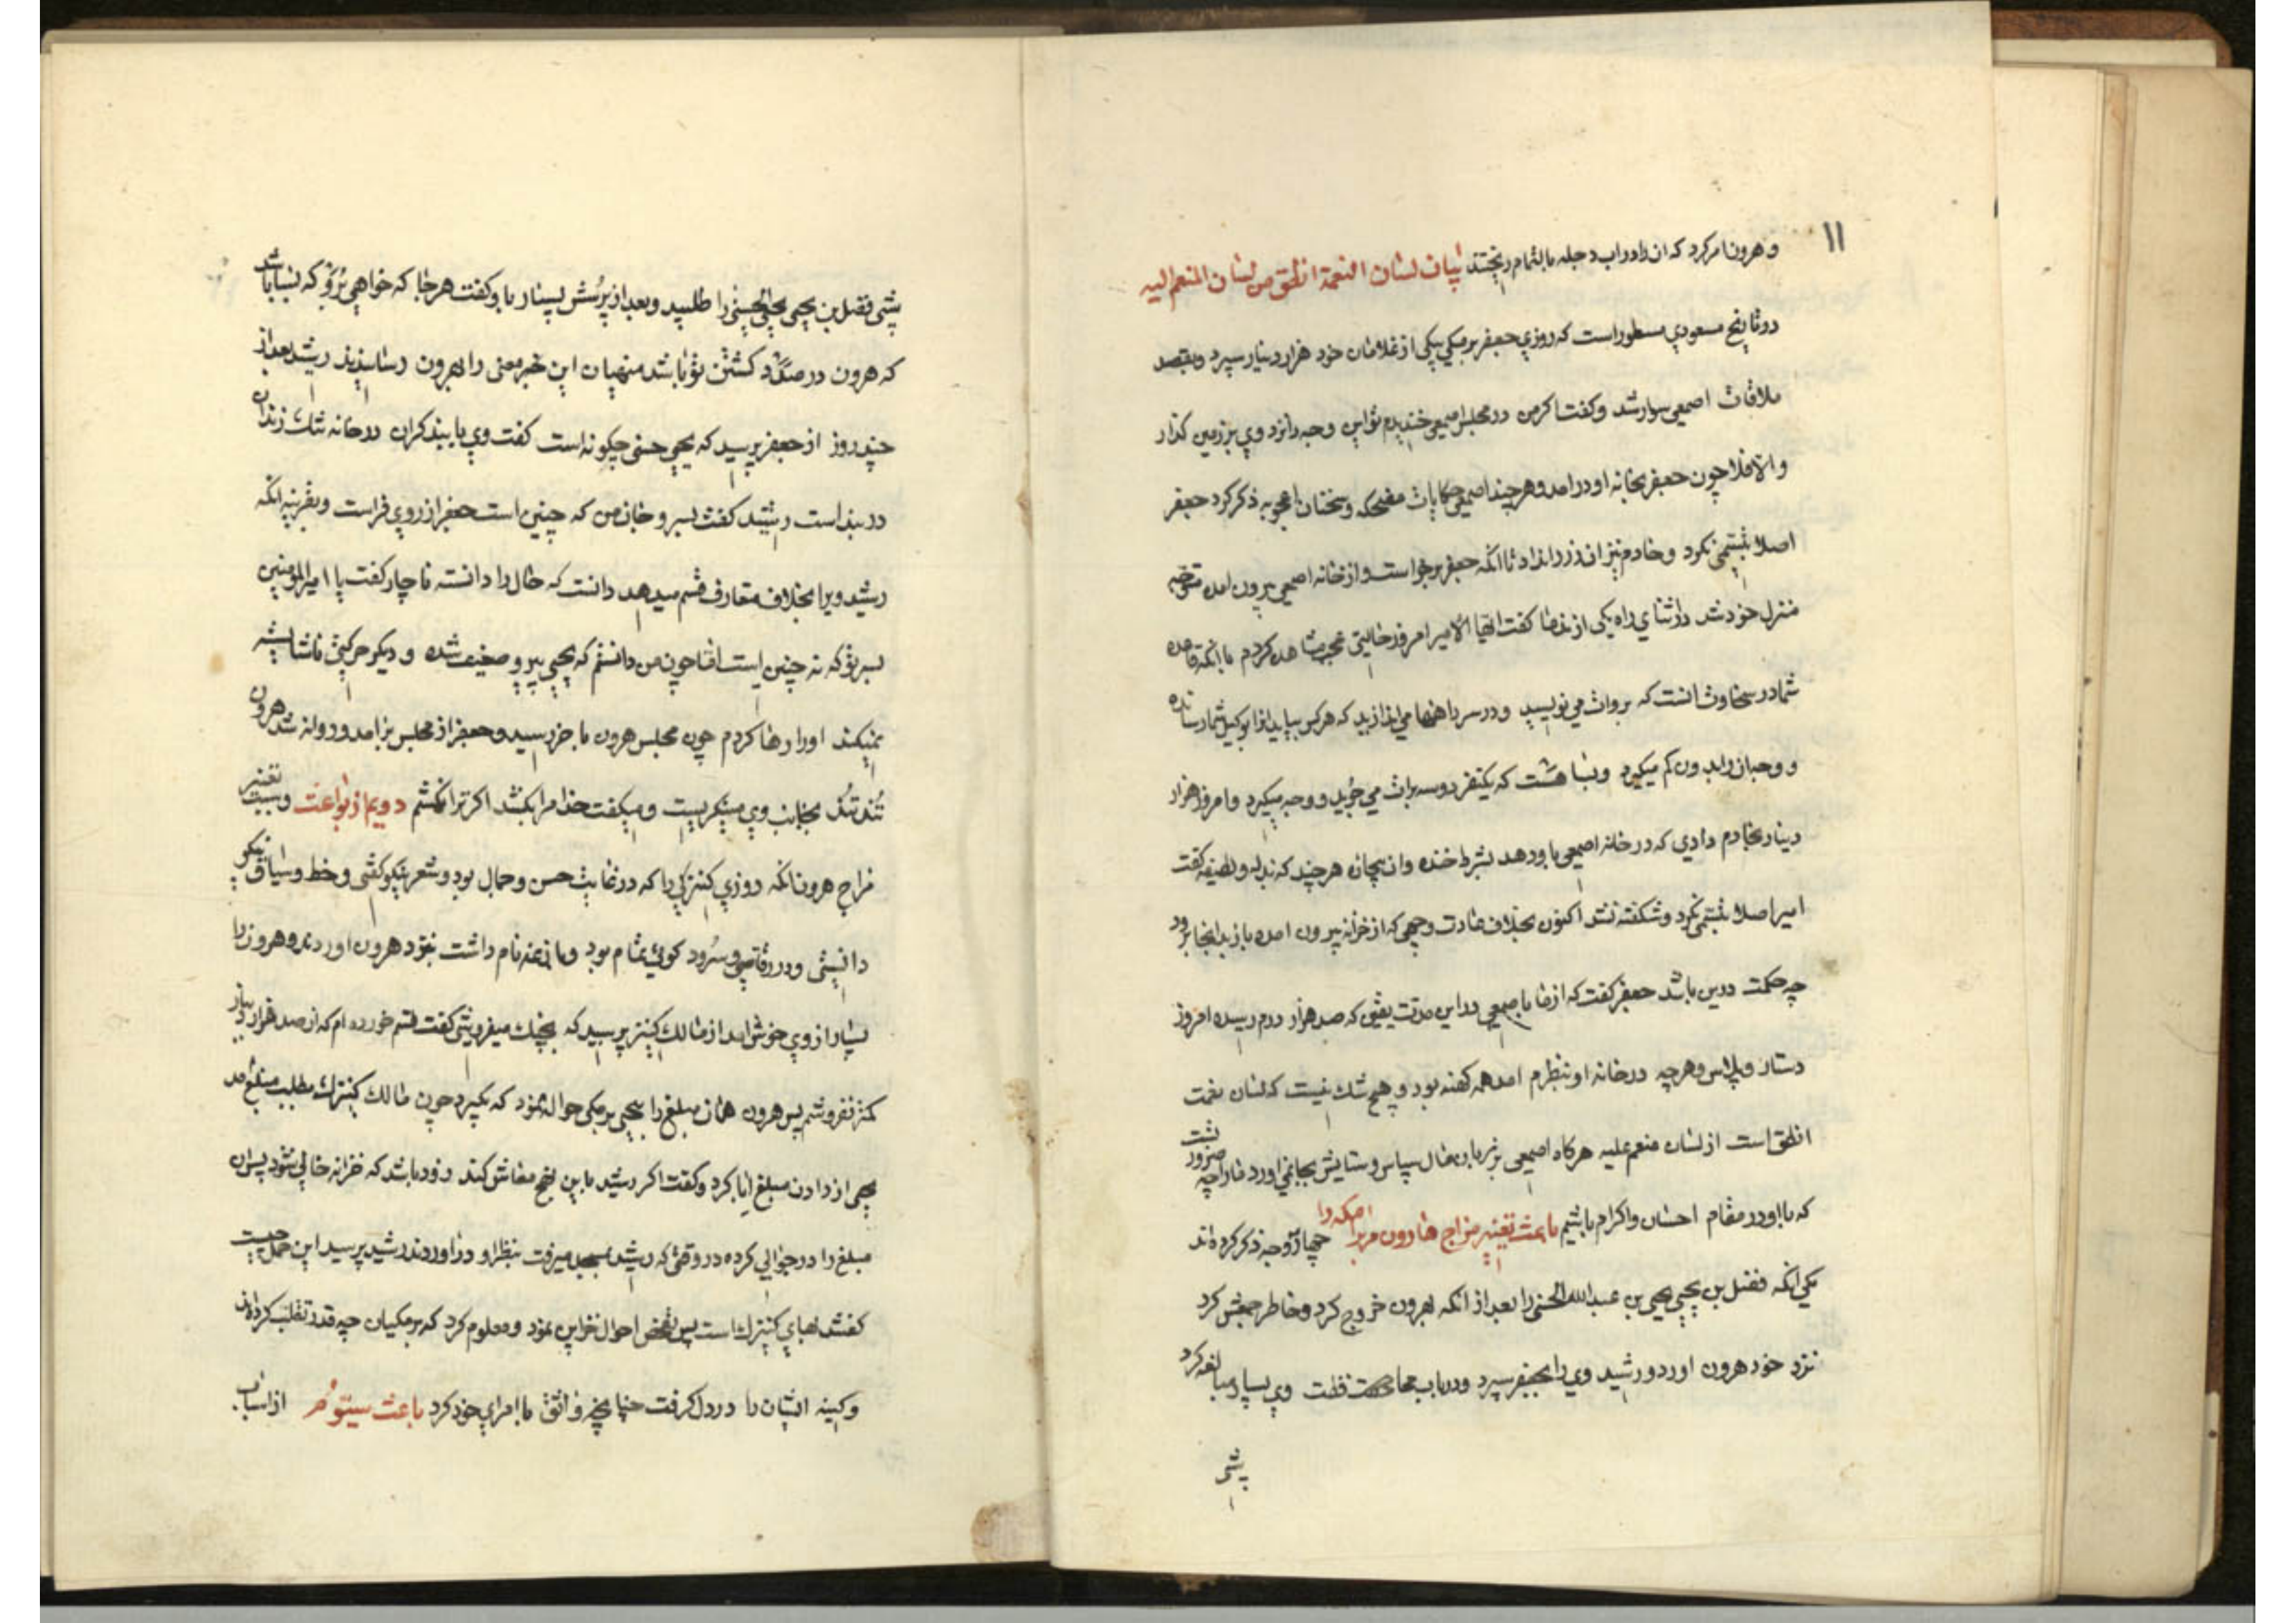 ۱۱
و هرون امر کرد که ان را در اب دجله بالتمام ریختند بیان لسان النعمة انطق من لسان المنعم الیه
در تاریخ مسعودی مسطور است که روزی جعفر برمکی بیکی از غلامان خود هزار دینار سپرد و بقصد
ملاقات اصمعی سوار شد و کفت اکر من در مجلس اصمعی خندیدم تو این وجه را نزد وی بر زمین کذار
و الا فلا چون جعفر بخانه او در امد و هر چند اصمعی حکایات مضحکه و سخنان اعجوبه ذکر کرد جعفر
اصلا تبسمی نکرد و خادم نیز ان زر را نداد تا انکه جعفر برخواست و از خانه اصمعی بیرون امده متوجه
منزل خود شد در اثنای راه یکی از ندما کفت ایها الامیر امروز حالتی عجب مشاهده کردم با انکه قاعده
شما در سخاوت انست که بروات می نویسید و در سر راهها می اندازید که هر کس بیابد انرا بوکیل شما رسانده
و وجه ان را بدون کم میکیرد و بسا هست که یکنفر دو سه برات می جوید و وجه میکیرد و امروز هزار
دینار بخادم دادی که در خانه اصمعی باو دهد بشرط خنده و ان بیچاره هر چند که بذله و لطیفه کفت
امیر اصلا تبسمی نکرد و شکفته نشد اکنون بخلاف عادت وجهی که از خزانه بیرون امده باز بدانجا برود
چه حکمت درین باشد جعفر کفت که از ما باصمعی در این مدت یقین که صد هزار درم رسیده امروز
دستار و پلاس و هرچه در خانه او بنظرم امد همه کهنه بود و هیچ شک نیست که لسان نعمت
انطق است از لسان منعم علیه هرکاه اصمعی بر زبان حال سپاس و ستایش بجا نمی اورد ما را چه ضرور نست
که با او در مقام احسان و اکرام باشیم باعث تغییر مزاج هارون مر برامکه را چهار وجه ذکر کرده اند
یکی انکه فضل بن یحیی یحیی بن عبدالله الحسنی را بعد از انکه بهرون خروج کرد و خاطر جمعش کرد
نزد خود هرون اورد و رشید وی را بجعفر سپرد و در باب محافظت وی بسیار مبالغه کرد
پشی
پشی فضل بن یحیی یحیی الحسنی را طلبید و بعد از پرسش بسیار باو کفت هر جا که خواهی برو که نباید
که هرون در صدد کشتن تو باشد منهیان این خبر معنی را بهرون رسانیدند رشید بعد از
چند روز از جعفر پرسید که یحیی حسنی چکونه است کفت وی با بند کران در خانه تنک زندان
در بند است رشید کفت بسر و جان من که چنین است جعفر از روی فراست و بقرینه انکه
رشید ویرا بخلاف متعارف قسم میدهد دانست که حال را دانسته ناچار کفت یا امیرالمؤمنین
بسر تو که نه چنین است اما چون من دانستم که یحیی پیر و ضعیف شده و دیکر حرکتی ناشایسته
نمیکند او را رها کردم چون مجلس هرون باخر رسید و جعفر از مجلس برامد و روانه شد هرون
تند تند بجانب وی مینکریست و میکفت خدا مرا بکشد اکر ترا نکشم دویم از بواعث و سبب تغییر
مزاج هرون انکه روزی کنیزکی را که در غایت حسن و جمال بود و شعر نیکو کفتی و خط و سیاق نیکو
دانستی و در رقاصی و سرود کوئی تمام بود و نام داشت بنزد هرون اوردند و هرون را
بسیار از وی خوش امد از مالک کنیز پرسید که بچند میفروشی کفت قسم خورده ام که از صد هزار دینار
کمتر نفروشم پس هرون همان مبلغ را بیحیی برمکی حواله نمود که بکیرد چون مالک کنیزک بطلب مبلغ شد
یحیی از دادن مبلغ ابا کرد و کفت اکر رشید باین نهج معاش کند زود باشد که خزانه خالی شود پس ان
مبلغ را در جوالی کرده در وقتی که رشید میرفت بنظر او در اوردند رشید پرسید این چیست
کفتند بهای کنیزک است پس تفحص احوال خزاین نمود و معلوم کرد که برمکیان چه قدر تغلب کرده اند
و کینه ایشان را در دل کرفت باعث سیوم از اسباب